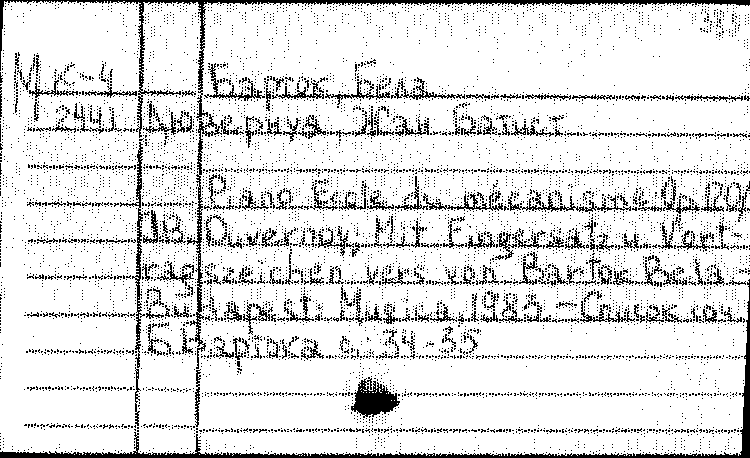 М К-4 Барток, Бела
2441 Дювернуа, Жан Батист
Piano Ecole du mécanisme Op 120/
J.B. Duvernoy, Mit Fingersatz u Vort-
ragszeichen vers von Bartok Bela -
Budapest: Musica, 1983 - Список соч
Б.Бартока с.: 34-35